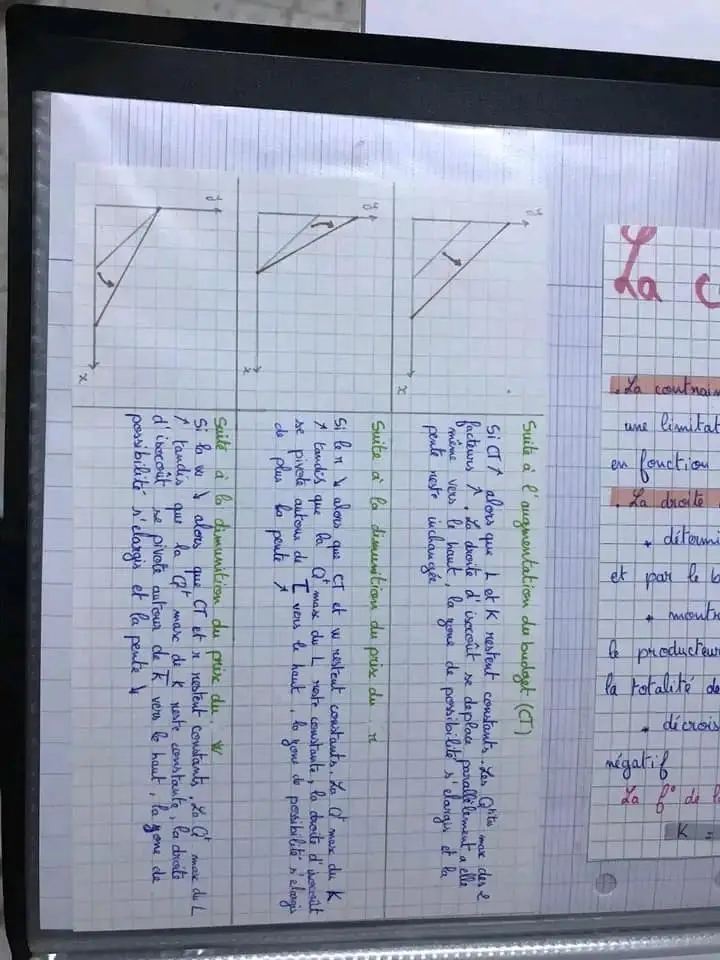 La c
. La contrain
une limitat
en fonction
. La droite
détermi
et par le b
montr
le producteur
la totalité de
décrois
négatif
La f° de l
K =
y
x
Suite à l'augmentation du budget (CT)
Si CT ↗ alors que L et K restent constants. Les Qtités max des 2
facteurs ↗. La droite d'isocoût se déplace parallèlement a elle
même vers le haut, la zone de possibilité s'élargis et la
pente reste inchangée
y
x
Suite à la dimunition du prix du r
Si le r ↘ alors que CT et w restent constants. La Qt max du K
↗ tandis que la Qt max du L reste constante, la droite d'isocoût
se pivote autour de L̅ vers le haut, la zone de possibilité s'élargis
de plus la pente ↗
y
x
Suite à la dimunition du prix du w
Si la w ↘ alors que CT et r restent constants. La Qt max du L
↗ tandis que la Qt max de K reste constante, la droite
d'isocoût se pivote autour de K̅ vers le haut, la zone de
possibilité s'élargis et la pente ↘